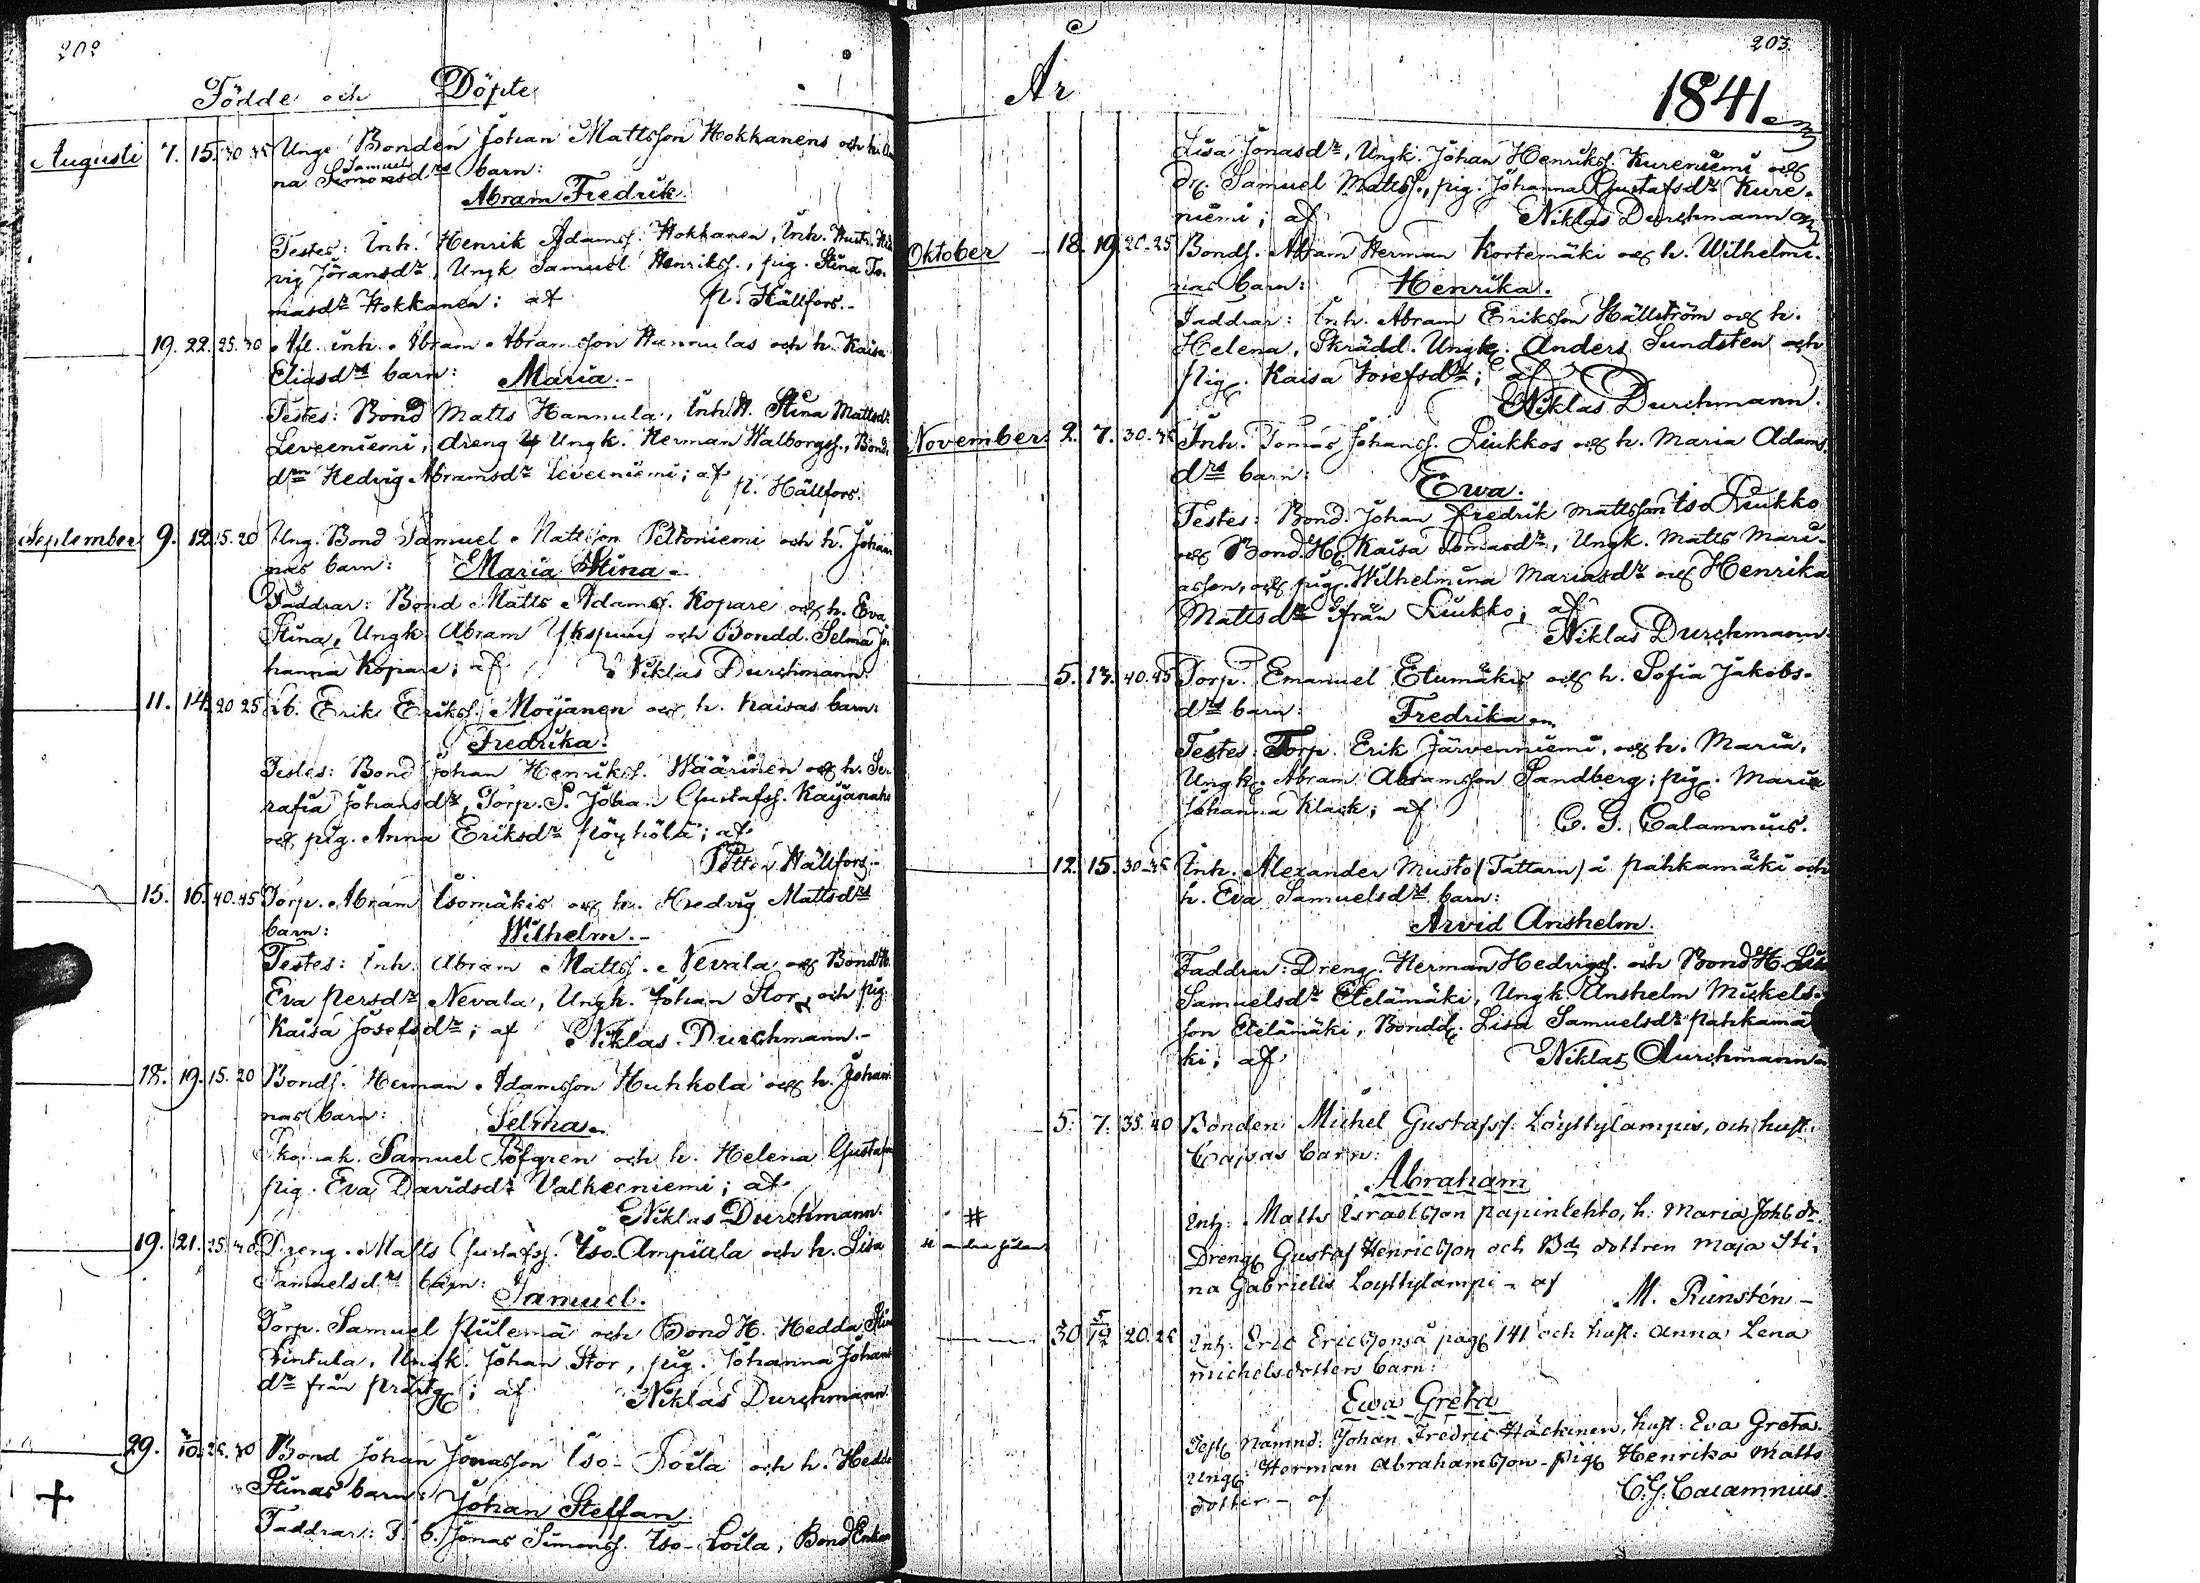 202
Födde och Döpte
Augusti 7. 15. 30 35 Unge Bonden Johan Mattsson Hokkanens och h.
Samuel
na Simonsdrs barn:
Abram Fredrik.
Testes: Inh. Henrik Adamss. Hokkanen, Inh. Hustr.
vig Jöransdr, Ungk Samuel Henrikss., pig. Stina To-
masdr Hokkanen: af P. Hällfors.-
19. 22. 25. 30 Afl. inh. Abram Abramsson Hannulas och h. Kaisa
Eliasdrs barn: Maria.-
Testes: Bond Matts Hannula, Inh.H. Stina Mattsdr
Leveeniemi, dreng Ungk. Herman Walborgss., Bond.
dn Hedvig Abramsdr Leveeniemi; af P. Hällfors.
September 9. 12. 15. 20 Ung. Bond Samuel Mattsson Peltoniemi och h. Johan
nas barn: Maria Stina.
Faddrar: Bond Matts Adamss. Kopare och h. Eva
Stina, Ungk. Abram Ykspuu och Bondd. Selma Jo
hanna Kopare; af Niklas Durchmann.
11. 14. 20 25 Erik Erikss. Moijanen och h. Kaisas barn:
Fredrika.
Testes: Bond Johan Henrikss. Wäärinen och h. Se-
rafia Johansdr, Torp. S. Johan Gustafss.
och pig. Anna Eriksdr Pöyhölä; af
Petter Hällfors.-
15. 16. 40. 45 Torp. Abram Isomäkis och h. Hedvig Mattsdrs
barn: Wilhelm.-
Testes: Inh. Abram Mattss. Nevala och Bond H.
Eva Persdr Nevala, Ungk. Johan Stor, och pig.
Kaisa Josefsdr; af Niklas Durchmann.-
18. 19. 15. 20 Bonds. Herman Adamsson Huhkola och h. Johan
nas barn: Selma.
Skomak. Samuel Löfgren och h. Helena Gustafs
pig. Eva Davidsdr Valkeeniemi; af
Niklas Durchmann.
19. 21. 25. 30 Dreng. Matts Gustafss. Iso Ampiala och h. Lisa
Samuelsdrs barn: Samuel.
Torp. Samuel Piilemä och Bond H. Hedda Stina
Tintula, Ungk. Johan Stor, pig. Johanna Johans
dr från Prästg; af Niklas Durchmann
29. 25. 30 Bond Johan Jonasson Iso-Loila och h. Hedda
Stinas barn: Johan Steffan.
Faddrar: Jonas Simonss. Iso-Loila, Bond Enkan
203.
År 1841
Lisa Jonasdr, Ungk. Johan Henrikss. Kureniemi och
Dr. Samuel Mattss., pig. Johanna Gustafsdr Kure-
niemi; af Niklas Durchmann
Oktober 18. 19. 20. 25 Bonds. Abram Herman Kortemäki och h. Wilhelmi-
nas barn: Henrika.
Faddrar: Inh. Abram Eriksson Hällström och h.
Helena, Skrädd. Ungk. Anders Sundsten och
Pig. Kaisa Josefsdr; af
Niklas Durchmann.
November 2. 7. 30. 35 Inh. Tomas Johanss. Liukkos och h. Maria Adams
drs barn: Ewa.
Testes: Bond. Johan Fredrik Mattsson Iso Liukko
och Bond.H. Kaisa Tomasdr, Ungk. Matts Mari-
asson, och pig. Wilhelmina Mariasdr och Henrika
Mattsdr från Liukko; af
Niklas Durchmann.
5. 13. 40. 45 Torp. Emanuel Etumäkis och h. Sofia Jakobs-
drs barn: Fredrika.
Testes: Torp. Erik Järvenniemi, och h. Maria,
Ungk. Abram Abramsson Sandberg; pig. Maria
Johanna Klack; af C. G. Calamnius.
12. 15. 30 35 Inh. Alexander Musto (Tattarn) å Pahkamäki och
h. Eva Samuelsdrs barn:
Arvid Anshelm.
Faddrar: Dreng. Herman Hedvigs. och Bond H. Lisa
Samuelsdr Etelämäki, Ungk. Anshelm Mickels-
son Etelämäki, Bondd. Lisa Samuelsdr Pahkamä
ki; af Niklas Durchmann
5. 7. 35. 40 Bonden Michel Gustafss: Löyttylampis, och hust.
Cajsas barn:
Abraham
# Inh: Matts Israelsson Papinlehto, h: Maria Joh:dr
andra sidan Dreng Gustaf Henricsson och Bd dottren Maja Sti-
na Gabrielis Löyttylampi - af M. Rünstén -
30 5/12 20. 25 Inh: Eric Ericsson å pag 141 och hust: Anna Lena
Michelsdotters barn:
Ewa Greta
Test Nämnd: Johan Fredric Häckinen, hust: Eva Greta.
Ung: Herman Abrahamsson - pig Henrika Matts
dotter - af C. G. Calamnius.